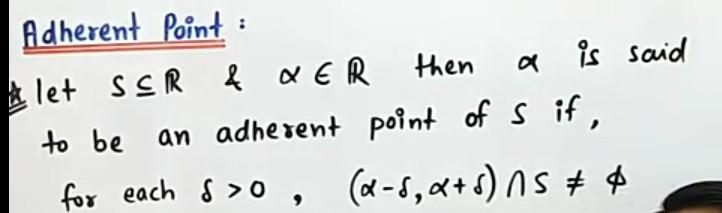 Adherent Point :
* let S ⊆ ℝ & α ∈ ℝ then α is said
to be an adherent point of S if,
for each δ > 0 , (α-δ, α+δ) ∩ S ≠ ϕ